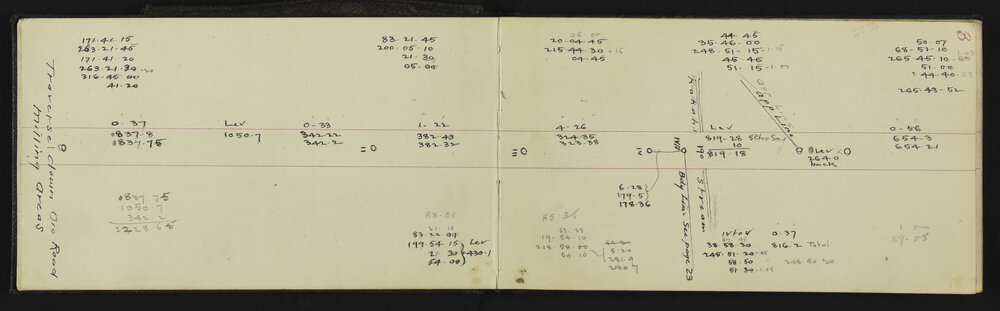 171·41·15
263·21·45
171·41·20
263·21·30·20
316·45·00
41·20
Traverse down Oio Road
milling areas
0·37
837·8
837·75
Lev
1050·7
0·33
342·22
342·2
837 75
1050·7
342·2
83·21·45
200·05·10
21·30
05·00
1·22
382·43
382·32
88·38
21·10
83·22·00
199·54·15
21·30
54·00
Lev
430·1
05 00
20·04·45
215·44·30 + 15
04·45
4·26
324·35
323·38
85 36
19·54·10
218·58·00
54·10
5·21
281·9
280·7
6·28
179·5
178·36
44·45
35·46·00
248·51·15-1·15
45·45
51·15-1·00
Kokahi
Stream
190
Bdy Line See page 23
Lev
819·28
10
819·18
opp Line
0·37
38·58·30
816·2 Total
248·51·20
58·50
248·50·20
51·30
Lev
264·0
back
3
50·07
68·51·10
265·45·10
51·00
44·40
265·43·52
0·56
654·3
654 21
1 00
89-08